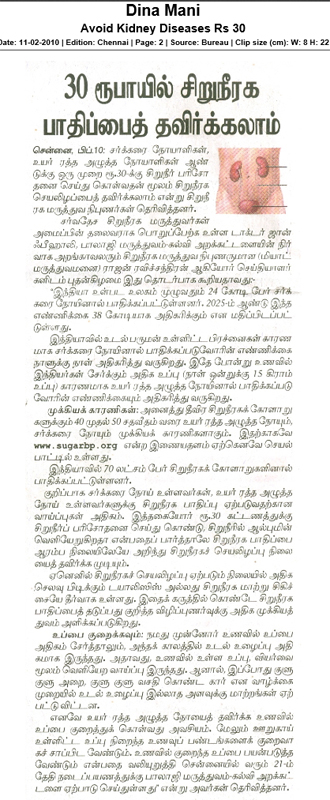 Dina Mani
Avoid Kidney Diseases Rs 30
Date: 11-02-2010 | Edition: Chennai | Page: 2 | Source: Bureau | Clip size (cm): W: 8 H: 22
30 ரூபாயில் சிறுநீரக
பாதிப்பைத் தவிர்க்கலாம்
சென்னை, பிப்.10: சர்க்கரை நோயாளிகள்,
உயர் ரத்த அழுத்த நோயாளிகள் ஆண்
டுக்கு ஒரு முறை ரூ.30-க்கு சிறுநீர் பரிசோ
தனை செய்து கொள்வதன் மூலம் சிறுநீரக
செயலிழப்பைத் தவிர்க்கலாம் என்று சிறுநீ
ரக மருத்துவ நிபுணர்கள் தெரிவித்தனர்.
சர்வதேச சிறுநீரக மருத்துவர்கள்
அமைப்பின் தலைவராக பொறுப்பேற்க உள்ள டாக்டர் ஜான்
ஃபீஹாலி, பாலாஜி மருத்துவம்-கல்வி அறக்கட்டளையின் நிர்
வாக அறங்காவலரும் சிறுநீரக மருத்துவ நிபுணருமான (மியாட்
மருத்துவமனை) ராஜன் ரவிச்சந்திரன் ஆகியோர் செய்தியாளர்
களிடம் புதன்கிழமை இது தொடர்பாக கூறியதாவது:-
"இந்தியா உள்பட உலகம் முழுவதும் 24 கோடி பேர் சர்க்
கரை நோயினால் பாதிக்கப்பட்டுள்ளனர். 2025-ம் ஆண்டு இந்த
எண்ணிக்கை 38 கோடியாக அதிகரிக்கும் என மதிப்பிடப்பட்
டுள்ளது.
இந்தியாவில் உடல் பருமன் உள்ளிட்ட பிரச்னைகள் காரண
மாக சர்க்கரை நோயினால் பாதிக்கப்படுவோரின் எண்ணிக்கை
நாளுக்கு நாள் அதிகரித்து வருகிறது. இதே போன்று உணவில்
இந்தியர்கள் சேர்க்கும் அதிக உப்பு (நாள் ஒன்றுக்கு 15 கிராம்
உப்பு) காரணமாக உயர் ரத்த அழுத்த நோயினால் பாதிக்கப்படு
வோரின் எண்ணிக்கையும் அதிகரித்து வருகிறது.
முக்கியக் காரணிகள்: அனைத்து தீவிர சிறுநீரகக் கோளாறு
களுக்கும் 40 முதல் 50 சதவீதம் வரை உயர் ரத்த அழுத்த நோயும்,
சர்க்கரை நோயும் முக்கியக் காரணிகளாகும். இதற்காகவே
www.sugarbp.org என்ற இணையதளம் ஏற்கெனவே செயல்
பாட்டில் உள்ளது.
இந்தியாவில் 70 லட்சம் பேர் சிறுநீரகக் கோளாறுகளினால்
பாதிக்கப்பட்டுள்ளனர்.
குறிப்பாக சர்க்கரை நோய் உள்ளவர்கள், உயர் ரத்த அழுத்த
நோய் உள்ளவர்களுக்கு சிறுநீரக பாதிப்பு ஏற்படுவதற்கான
வாய்ப்புகள் அதிகம். இத்தகையோர் ரூ.30 கட்டணத்துக்கு
சிறுநீர்ப் பரிசோதனை செய்து கொண்டு, சிறுநீரில் ஆல்புமின்
வெளியேறுகிறதா என்பதைப் பார்த்தாலே சிறுநீரக பாதிப்பை
ஆரம்ப நிலையிலேயே அறிந்து சிறுநீரகச் செயலிழப்பு நிலை
யைத் தவிர்க்க முடியும்.
ஏனெனில் சிறுநீரகச் செயலிழப்பு ஏற்படும் நிலையில் அதிக
செலவு பிடிக்கும் டயாலிஸிஸ் அல்லது சிறுநீரக மாற்று சிகிச்
சையே தீர்வாக உள்ளன. இதைக் கருத்தில் கொண்டே சிறுநீரக
பாதிப்பைத் தடுப்பது குறித்த விழிப்புணர்வுக்கு அதிக முக்கியத்
துவம் அளிக்கப்படுகிறது.
உப்பை குறைக்கவும்: நமது முன்னோர் உணவில் உப்பை
அதிகம் சேர்த்தாலும், அந்தக் காலத்தில் உடல் உழைப்பு அதி
கமாக இருந்தது. அதாவது, உணவில் உள்ள உப்பு, வியர்வை
மூலம் வெளியேற வாய்ப்பு இருந்தது. ஆனால், இப்போது குளு
குளு அறை, குளு குளு வசதி கொண்ட கார் என வாழ்க்கை
முறையில் உடல் உழைப்பு இல்லாத அளவுக்கு மாற்றங்கள் ஏற்
பட்டு விட்டன.
எனவே உயர் ரத்த அழுத்த நோயைத் தவிர்க்க உணவில்
உப்பை குறைத்துக் கொள்வது அவசியம். மேலும் ஊறுகாய்
உள்ளிட்ட உப்பு நிறைந்த உணவுப் பண்டங்களைக் குறைவா
கச் சாப்பிட வேண்டும். உணவில் குறைந்த உப்பை பயன்படுத்த
வேண்டும் என்பதை வலியுறுத்தி சென்னையில் வரும் 21-ம்
தேதி நடைப்பயணத்துக்கு பாலாஜி மருத்துவம்-கல்வி அறக்கட்
டளை ஏற்பாடு செய்துள்ளது" என்று அவர்கள் தெரிவித்தனர்.